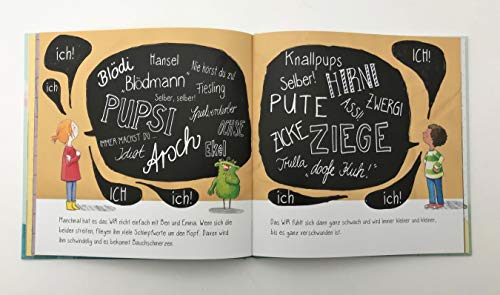 ich!
ich
Blödi
Hansel
„Blödmann"
Nie hörst du zu!
Fiesling
Selber, selber!
PUPSI
Spielverderber
OCHSE
IMMER MACHST DU...
Idiot
Arsch
Ekel
ICH
ich!
Manchmal hat es das WIR nicht einfach mit Ben und Emma. Wenn sich die
beiden streiten, fliegen ihm viele Schimpfworte um den Kopf. Davon wird
ihm schwindlig und es bekommt Bauchschmerzen.
Knallpups
ICH!
Selber!
HIRNI
PUTE
ASSI
ZWERGI
ZICKE
ZIEGE
Trulla
„doofe Kuh!"
ich
ich!
Das WIR fühlt sich dann ganz schwach und wird immer kleiner und kleiner,
bis es ganz verschwunden ist.